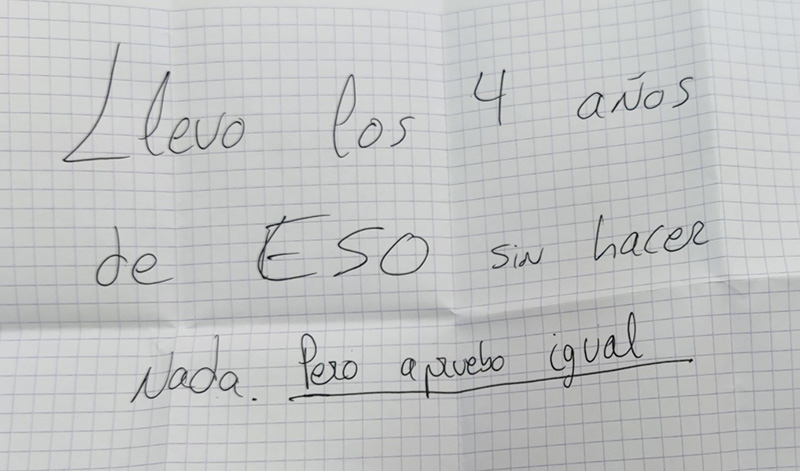 Llevo los 4 años
de ESO sin hacer
Nada. Pero apruebo igual